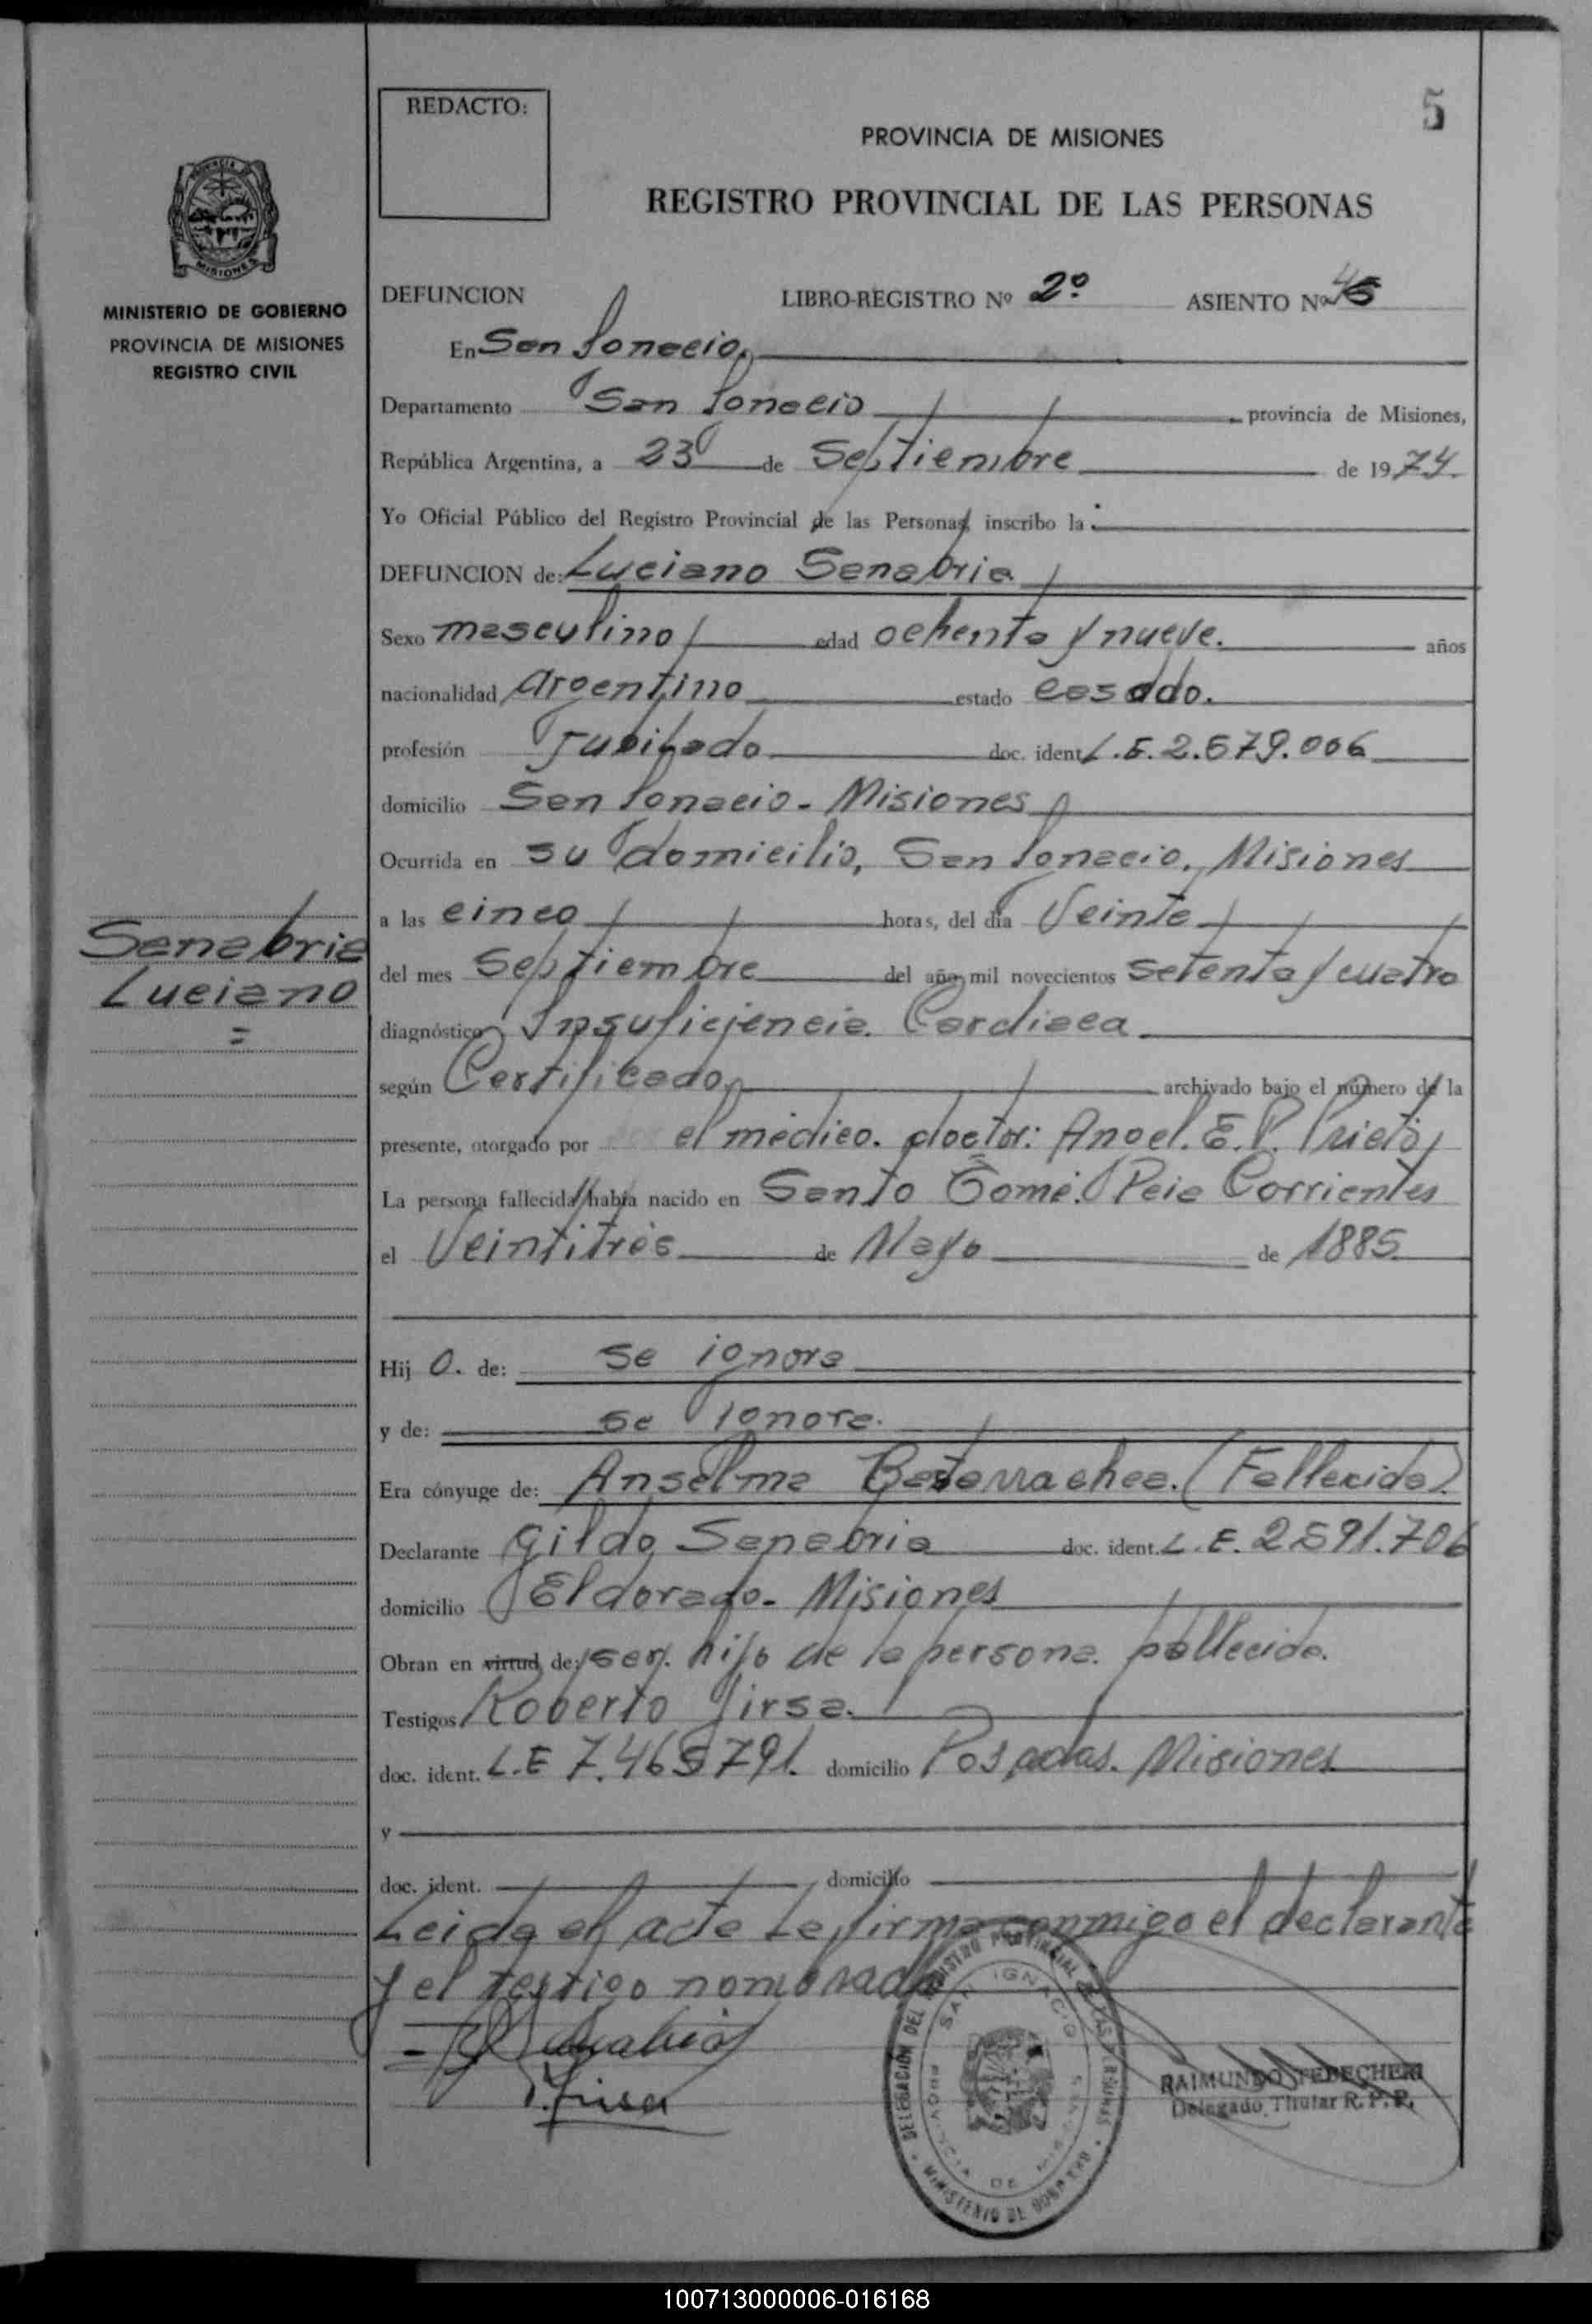 REDACTO:
5
PROVINCIA DE MISIONES
REGISTRO PROVINCIAL DE LAS PERSONAS
MINISTERIO DE GOBIERNO
PROVINCIA DE MISIONES
REGISTRO CIVIL
DEFUNCION LIBRO-REGISTRO Nº 2º ASIENTO Nº
En San Ignacio,
Departamento San Ignacio provincia de Misiones,
República Argentina, a 23 de Septiembre de 1974.
Yo Oficial Público del Registro Provincial de las Personas, inscribo la:
DEFUNCION de: Luciano Senabria
Sexo masculino edad ochenta y nueve. años
nacionalidad Argentino estado casado.
profesión Jubilado doc. ident. L.E. 2.579.006
domicilio San Ignacio - Misiones
Ocurrida en su domicilio, San Ignacio, Misiones
a las cinco horas, del día Veinte
del mes Septiembre del año mil novecientos setenta y cuatro
Senabria
Luciano
=
diagnóstico Insuficiencia Cardiaca
según Certificado archivado bajo el número de la
presente, otorgado por el médico. doctor: Angel. E. P. Prieto,
La persona fallecida había nacido en Santo Tomé. Pcia Corrientes
el Veintitrés de Mayo de 1885
Hij o. de: se ignora
y de: se ignora.
Era cónyuge de: Anselma (Fallecida)
Declarante Gildo Senabria doc. ident. L.E. 2591.706
domicilio Eldorado - Misiones
Obran en virtud de: ser hijo de la persona fallecida.
Testigos Roberto Jirsa.
doc. ident. L.E 7.465791. domicilio Posadas. Misiones
y
doc. ident. domicilio
Leida el acta la firma conmigo el declarante
y el testigo nombrado
Jirsa
DELEGACION DEL REGISTRO PROVINCIAL DE LAS PERSONAS
SAN IGNACIO
PROVINCIA DE MISIONES
MINISTERIO DE GOBIERNO
RAIMUNDO
Delegado Titular R. P. P.
100713000006-016168